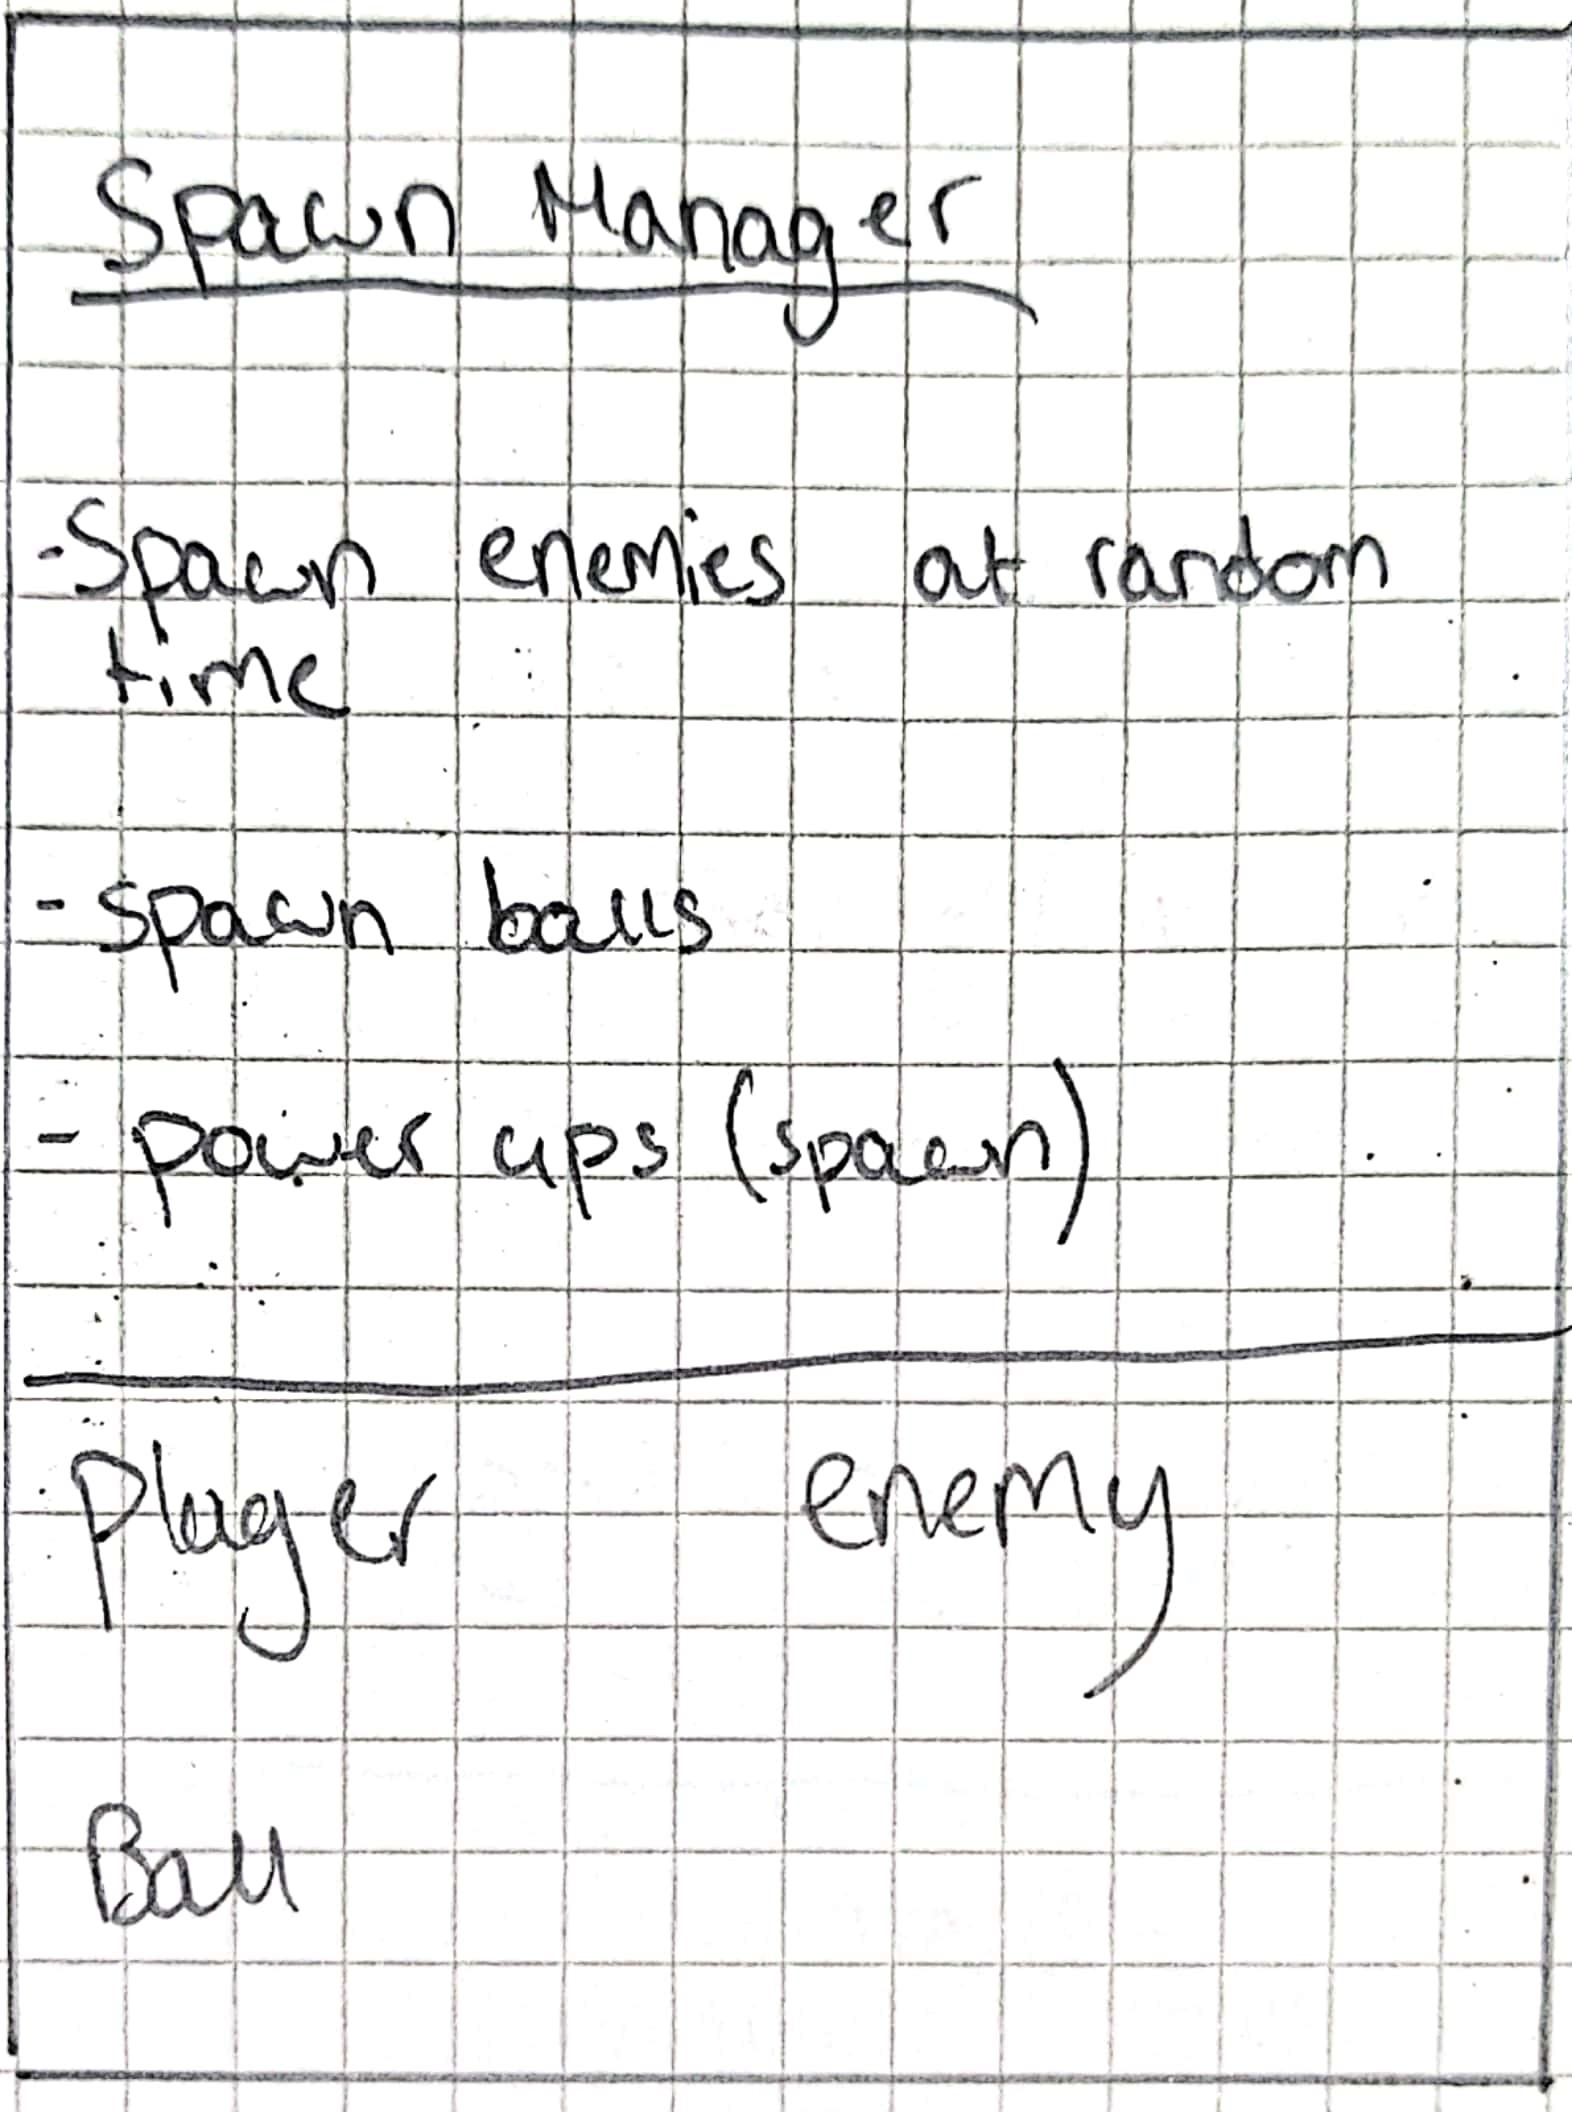 Spawn Manager
- Spawn enemies at random
time
- spawn balls
- power ups (spawn)
Player enemy
Ball